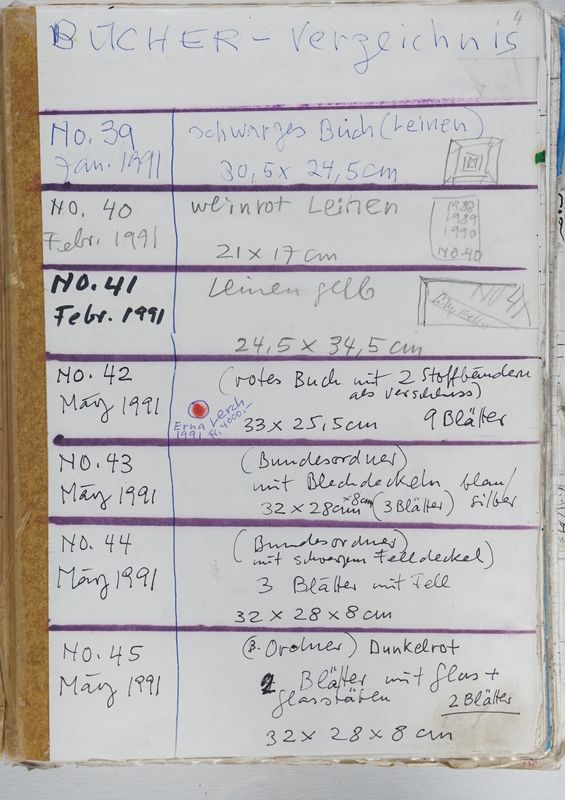 4
BÜCHER - Verzeichnis
No. 39
Jan. 1991
schwarzes Buch (Leinen)
30,5 x 24,5 cm
NO. 40
Febr. 1991
weinrot Leinen
21 x 17 cm
1988
1989
1990
NO. 40
NO. 41
Febr. 1991
Leinen gelb
24,5 x 34,5 cm
NO 41
NO. 42
März 1991
(rotes Buch mit 2 Stoffbändern
als Verschluss)
33 x 25,5 cm
9 Blätter
Erna
1991
4000.-
NO. 43
März 1991
(Bundesordner)
mit Blechdeckeln blau/
silber
32 x 28cm x 8cm (3 Blätter)
NO. 44
März 1991
(Bundesordner)
mit schwarzem Felldeckel)
3 Blätter mit Fell
32 x 28 x 8 cm
NO. 45
März 1991
(B. Ordner) Dunkelrot
2 Blätter mit Glas +
Glasstäben
2 Blätter
32 x 28 x 8 cm